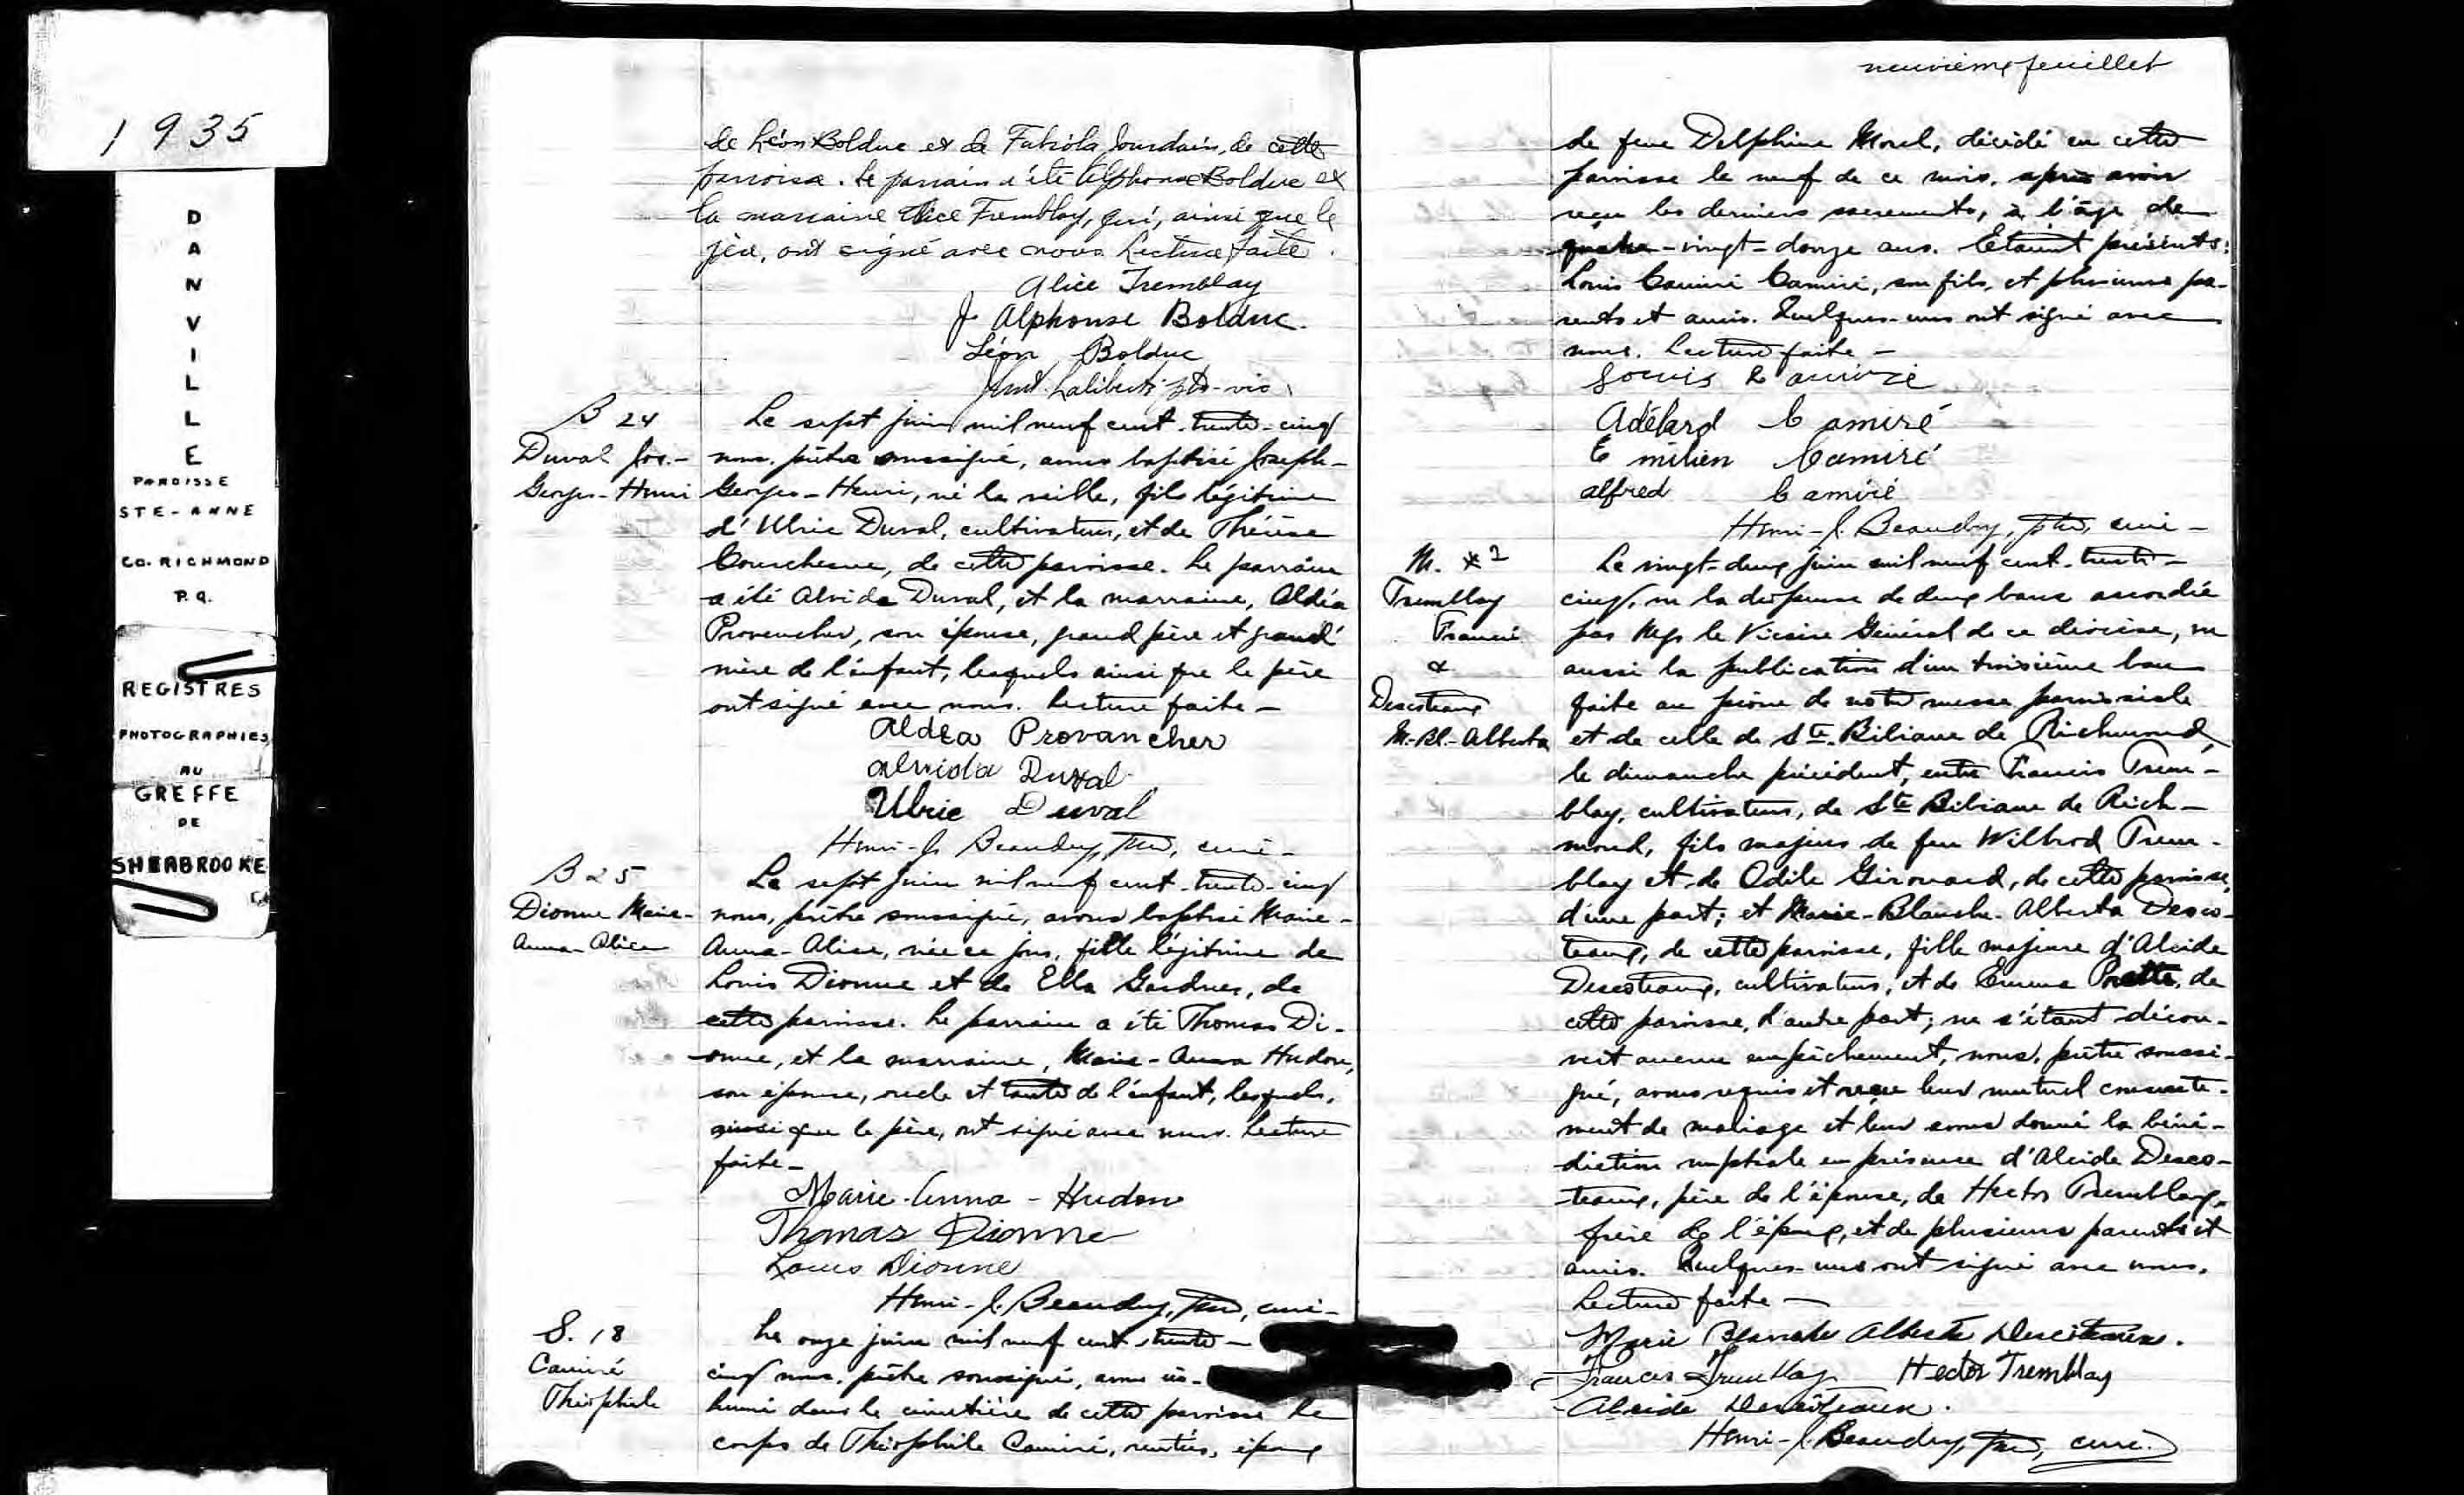 1935
DANVILLE
PAROISSE
STE-ANNE
CO. RICHMOND
P.Q.
REGISTRES
PHOTOGRAPHIES
AU
GREFFE
DE
SHERBROOKE
de Léon Bolduc et de Fabiola Jourdain, de cette
paroisse. Le parrain a été Alphonse Bolduc et
la marraine Alice Tremblay, qui, ainsi que le
père, ont signé avec nous. Lecture faite.
Alice Tremblay
J. Alphonse Bolduc.
Léon Bolduc
Laliberté ptre-vic
B 24
Duval Jos.-
Georges-Henri
Le sept juin mil neuf cent trente-cinq
nous, prêtre soussigné, avons baptisé Joseph-
Georges-Henri, né la veille, fils légitime
d'Ulric Duval, cultivateur, et de Thérèse
Courchesne, de cette paroisse. Le parrain
a été Alvida Duval, et la marraine, Aldéa
Provencher, son épouse, grand père et grand'
mère de l'enfant, lesquels ainsi que le père
ont signé avec nous. Lecture faite —
Aldéa Provancher
Alvida Duval
Ulric Duval
Henri-J. Beaudry, ptre, curé —
B 25
Dionne Marie-
Anna-Alice
Le sept juin mil neuf cent trente-cinq
nous, prêtre soussigné, avons baptisé Marie-
Anna-Alice, née ce jour, fille légitime de
Louis Dionne et de Ella Gardner, de
cette paroisse. Le parrain a été Thomas Di-
onne, et la marraine, Marie-Anna Hudon,
son épouse, oncle et tante de l'enfant, lesquels,
ainsi que le père, ont signé avec nous. Lecture
faite —
Marie-Anna-Hudon
Thomas Dionne
Louis Dionne
Henri-J. Beaudry, ptre, curé —
S. 18
Camiré
Théophile
Le onze juin mil neuf cent trente-
cinq nous, prêtre soussigné, avons in-
humé dans le cimetière de cette paroisse le
corps de Théophile Camiré, rentier, époux
neuvième feuillet
de feue Delphine Morel, décédé en cette
paroisse le neuf de ce mois, après avoir
reçu les derniers sacrements, à l'âge de
quatre-vingt-douze ans. Etaient présents:
Louis Camiré, son fils, et plusieurs pa-
rents et amis. Quelques-uns ont signé avec
nous. Lecture faite —
Louis Camiré
Adélard Camiré
Emilien Camiré
alfred Camiré
Henri-J. Beaudry, ptre, curé —
M.
Tremblay
Francis
&
Descoteaux
M.-Bl.-Alberta
Le vingt-deux juin mil neuf cent trente-
cinq, vu la dispense de deux bans accordée
par Mgr le Vicaire Général de ce diocèse, vu
aussi la publication d'un troisième ban
faite au prône de notre messe paroissiale
et de celle de Ste-Bibiane de Richmond,
le dimanche précédent, entre Francis Trem-
blay, cultivateur, de Ste Bibiane de Rich-
mond, fils majeur de feu Wilbrod Trem-
blay et de Odile Girouard, de cette paroisse,
d'une part; et Marie-Blanche-Alberta Desco-
teaux, de cette paroisse, fille majeure d'Alcide
Descoteaux, cultivateur, et de Emma de
cette paroisse, d'autre part; ne s'étant décou-
vert aucun empêchement, nous, prêtre soussi-
gné, avons requis et reçu leur mutuel consente-
ment de mariage et leur avons donné la béné-
diction nuptiale en présence d'Alcide Desco-
teaux, père de l'épouse, de Hector Tremblay,
frère de l'époux, et de plusieurs parents et
amis. Quelques-uns ont signé avec nous.
Lecture faite —
Marie Blanche Alberta Descôteaux.
Francis Tremblay Hector Tremblay
Alcide Descôteaux.
Henri-J. Beaudry, ptre, curé.